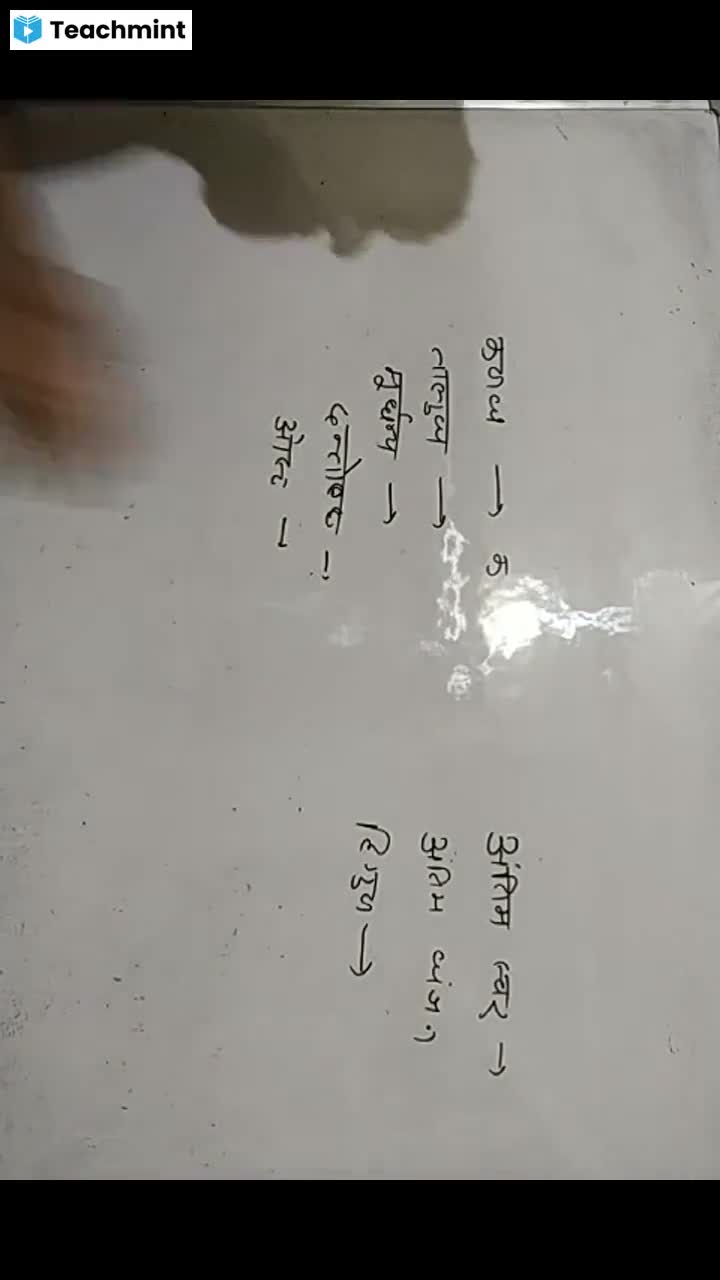 Teachmint
कण्ठ्य → क
तालुव्य →
मूर्धन्य →
दन्तोष्ठ →
ओष्ठ →
अंतिम स्वर →
अंतिम व्यंजन
द्विगुण →